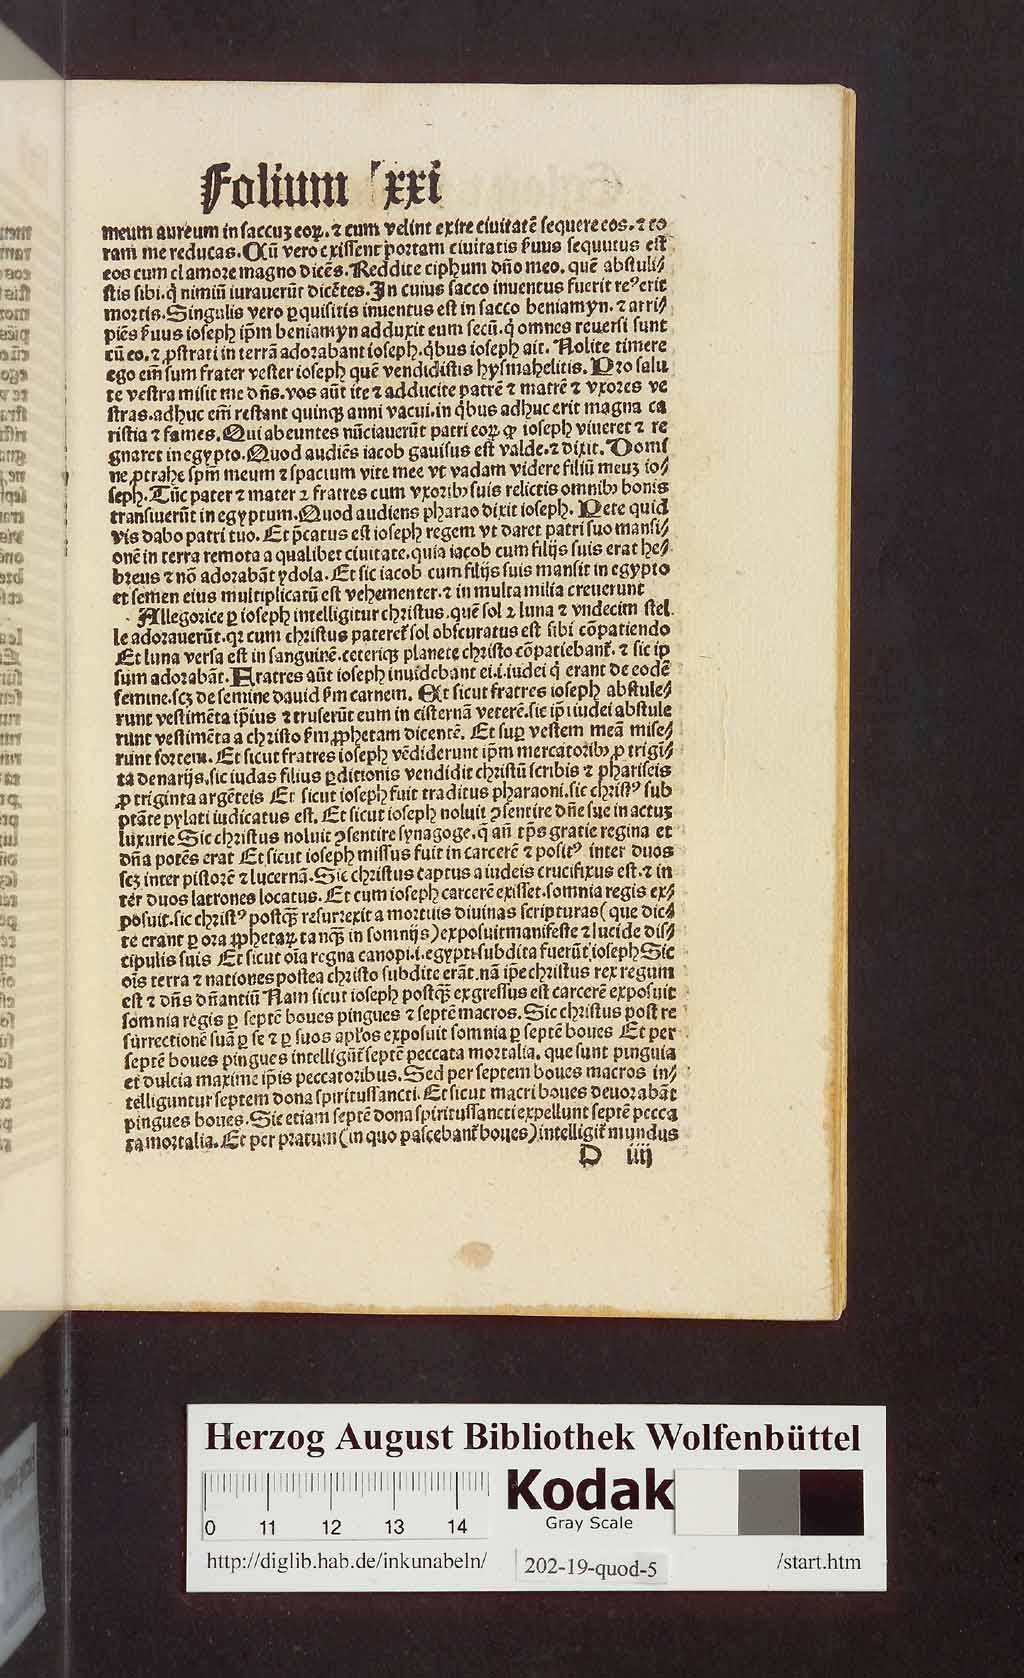 Folium xxi
meum aureum in saccuʒ eoꝝ. ⁊ cum velint exire ciuitatē sequere eos. ⁊ co
ram me reducas. Cū vero exissent portam ciuitatis ẜuus sequutus est
eos cum clamore magno dicēs. Reddite ciphum dño meo. quē abstuli/
stis sibi. q̇ nimiū iurauerūt dicētes. In cuius sacco inuentus fuerit reꝰ erit
mortis. Singulis vero ꝑquisitis inuentus est in sacco beniamyn. ⁊ arri/
piēs ẜuus ioseph ip̄m beniamyn adduxit eum secū. q̇ omnes reuersi sunt
cū eo. ⁊ ꝓstrati in terrā adorabant ioseph. q̇bus ioseph ait. Nolite timere
ego em̄ sum frater vester ioseph quē vendidistis hysmahelitis. Pro salu
te vestra misit me dn̄s. vos aūt ite ⁊ adducite patrē ⁊ matrē ⁊ vxores ve
stras. adhuc em̄ restant quinqꝫ anni vacui. in q̇bus adhuc erit magna ca
ristia ⁊ fames. Qui abeuntes nūciauerūt patri eoꝝ ꝙ ioseph viueret ⁊ re
gnaret in egypto. Quod audiēs iacob gauisus est valde. ⁊ dixit. Domi
ne ꝓtrahe spm̄ meum ⁊ spacium vite mee vt vadam videre filiū meuʒ io/
seph. Tūc pater ⁊ mater ⁊ fratres cum vxoribꝫ suis relictis omnibꝫ bonis
transiuerūt in egyptum. Quod audiens pharao dixit ioseph. Pete quid
vis dabo patri tuo. Et p̄catus est ioseph regem vt daret patri suo mansi/
onē in terra remota a qualibet ciuitate. quia iacob cum filijs suis erat he/
breus ⁊ nō adorabāt ydola. Et sic iacob cum filijs suis mansit in egypto
et semen eius multiplicatū est vehementer. ⁊ in multa milia creuerunt
Allegorice ꝑ ioseph intelligitur christus. quē sol ⁊ luna ⁊ vndecim stel
le adorauerūt. qꝛ cum christus pateret᷑ sol obscuratus est sibi cōpatiendo
Et luna versa est in sanguinē. ceteriqꝫ planete christo cōpatiebant᷑. ⁊ sic ip
sum adorabāt. Fratres aūt ioseph inuidebant ei. i. iudei q̇ erant de eodē
semine. scʒ de semine dauid ẜm carnem. Et sicut fratres ioseph abstule/
runt vestimēta ip̄ius ⁊ truserūt eum in cisternā veterē. sic ip̄i iudei abstule
runt vestimēta a christo ẜm ꝓphetam dicentē. Et suꝑ vestem meā mise/
runt sortem. Et sicut fratres ioseph vēdiderunt ip̄m mercatoribꝫ ꝓ trigī/
ta denarijs. sic iudas filius ꝑditionis vendidit christū scribis ⁊ phariseis
ꝓ triginta argēteis Et sicut ioseph fuit traditus pharaoni. sic christꝰ sub
ptāte pylati iudicatus est. Et sicut ioseph noluit ꝯsentire dn̄e sue in actuʒ
luxurie Sic christus noluit ꝯsentire synagoge. q̄ an̄ tp̄s gratie regina et
dn̄a potēs erat Et sicut ioseph missus fuit in carcerē ⁊ positꝰ inter duos
scʒ inter pistorē ⁊ lucernā. Sic christus captus a iudeis crucifixus est. ⁊ in
ter duos latrones locatus. Et cum ioseph carcerē exisset. somnia regis ex/
posuit. sic christꝰ postqꝫ̄ resurrexit a mortuis diuinas scripturas (que dic/
te erant ꝑ ora ꝓphetaꝝ tanqꝫ̄ in somnijs) exposuit manifeste ⁊ lucide dis/
cipulis suis Et sicut oīa regna canopi. i. egypti subdita fuerūt ioseph Sic
oīs terra ⁊ nationes postea christo subdite erāt. nā ip̄e christus rex regum
est ⁊ dn̄s dn̄antiū Nam sicut ioseph postqꝫ̄ exgressus est carcerē exposuit
somnia regis ꝑ septē boues pingues ⁊ septē macros. Sic christus post re
surrectionē suā ꝑ se ⁊ ꝑ suos apłos exposuit somnia ꝑ septē boues Et per
septē boues pingues intelligūt᷑ septē peccata mortalia. que sunt pinguia
et dulcia maxime ip̄is peccatoribus. Sed per septem boues macros in/
telliguntur septem dona spiritussancti. Et sicut macri boues deuorabāt
pingues boues. Sic etiam septē dona spiritussancti expellunt septē pecca
ta mortalia. Et per pratum (in quo pascebant᷑ boues) intelligit᷑ mundus
D iiij
Herzog August Bibliothek Wolfenbüttel
0 11 12 13 14
Kodak
Gray Scale
http://diglib.hab.de/inkunabeln/
202-19-quod-5
/start.htm